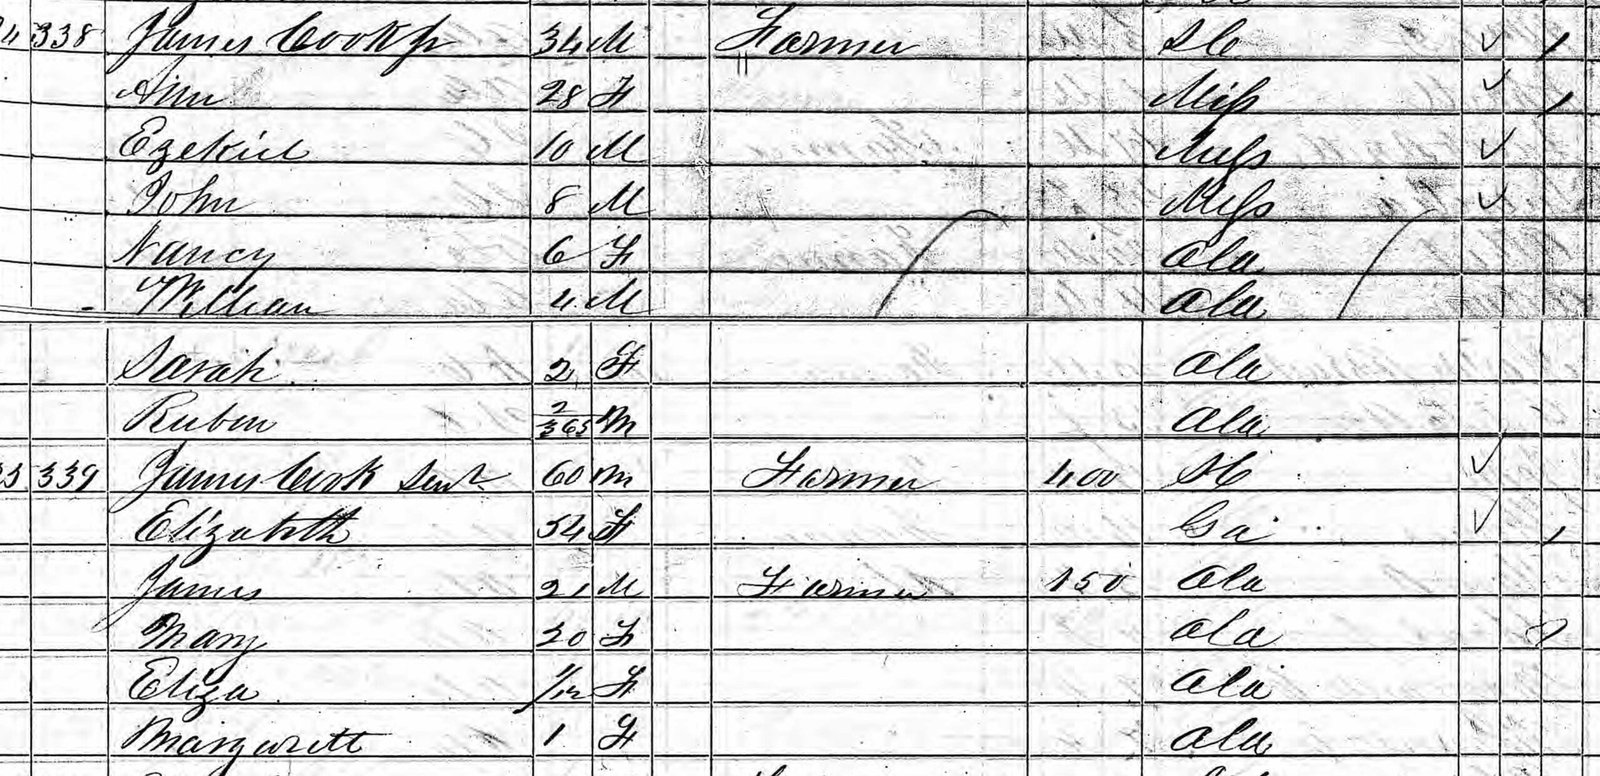 338 James Cook Jr 34 M Farmer SC
Ann 28 F Miss
Ezekiel 10 M Miss
John 8 M Miss
Nancy 6 F Ala
William 4 M Ala
Sarah 2 F Ala
Ruben 2/365 M Ala
339 James Cook Senr 60 M Farmer 400 SC
Elizabeth 54 F Ga
James 21 M Farmer 150 Ala
Mary 20 F Ala
Eliza 1/12 F Ala
Margarett 1 F Ala